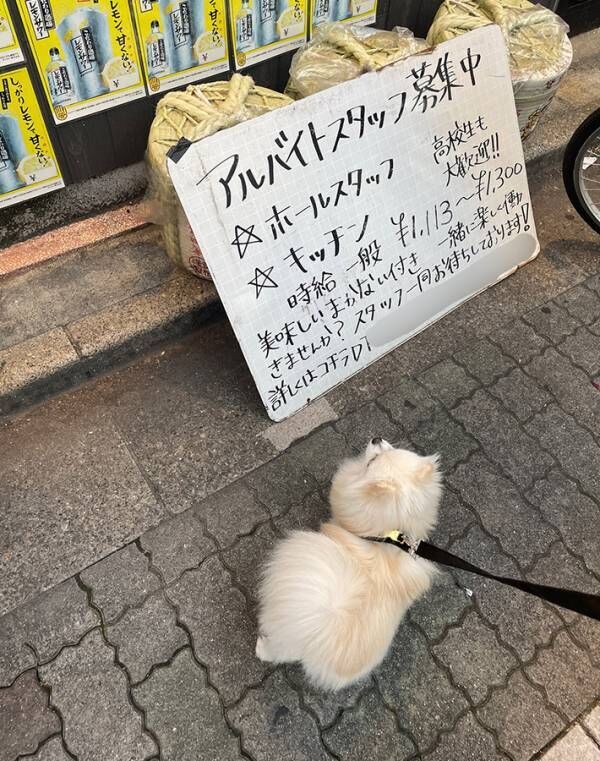 アルバイトスタッフ募集中
☆ホールスタッフ
高校生も
大歓迎!!
☆キッチン
時給 一般 ¥1,113~¥1,300
美味しいまかない付き 一緒に楽しく働
きませんか?スタッフ一同お待ちしております!
詳しくはコチラ
しっかりレモンで、甘くない。